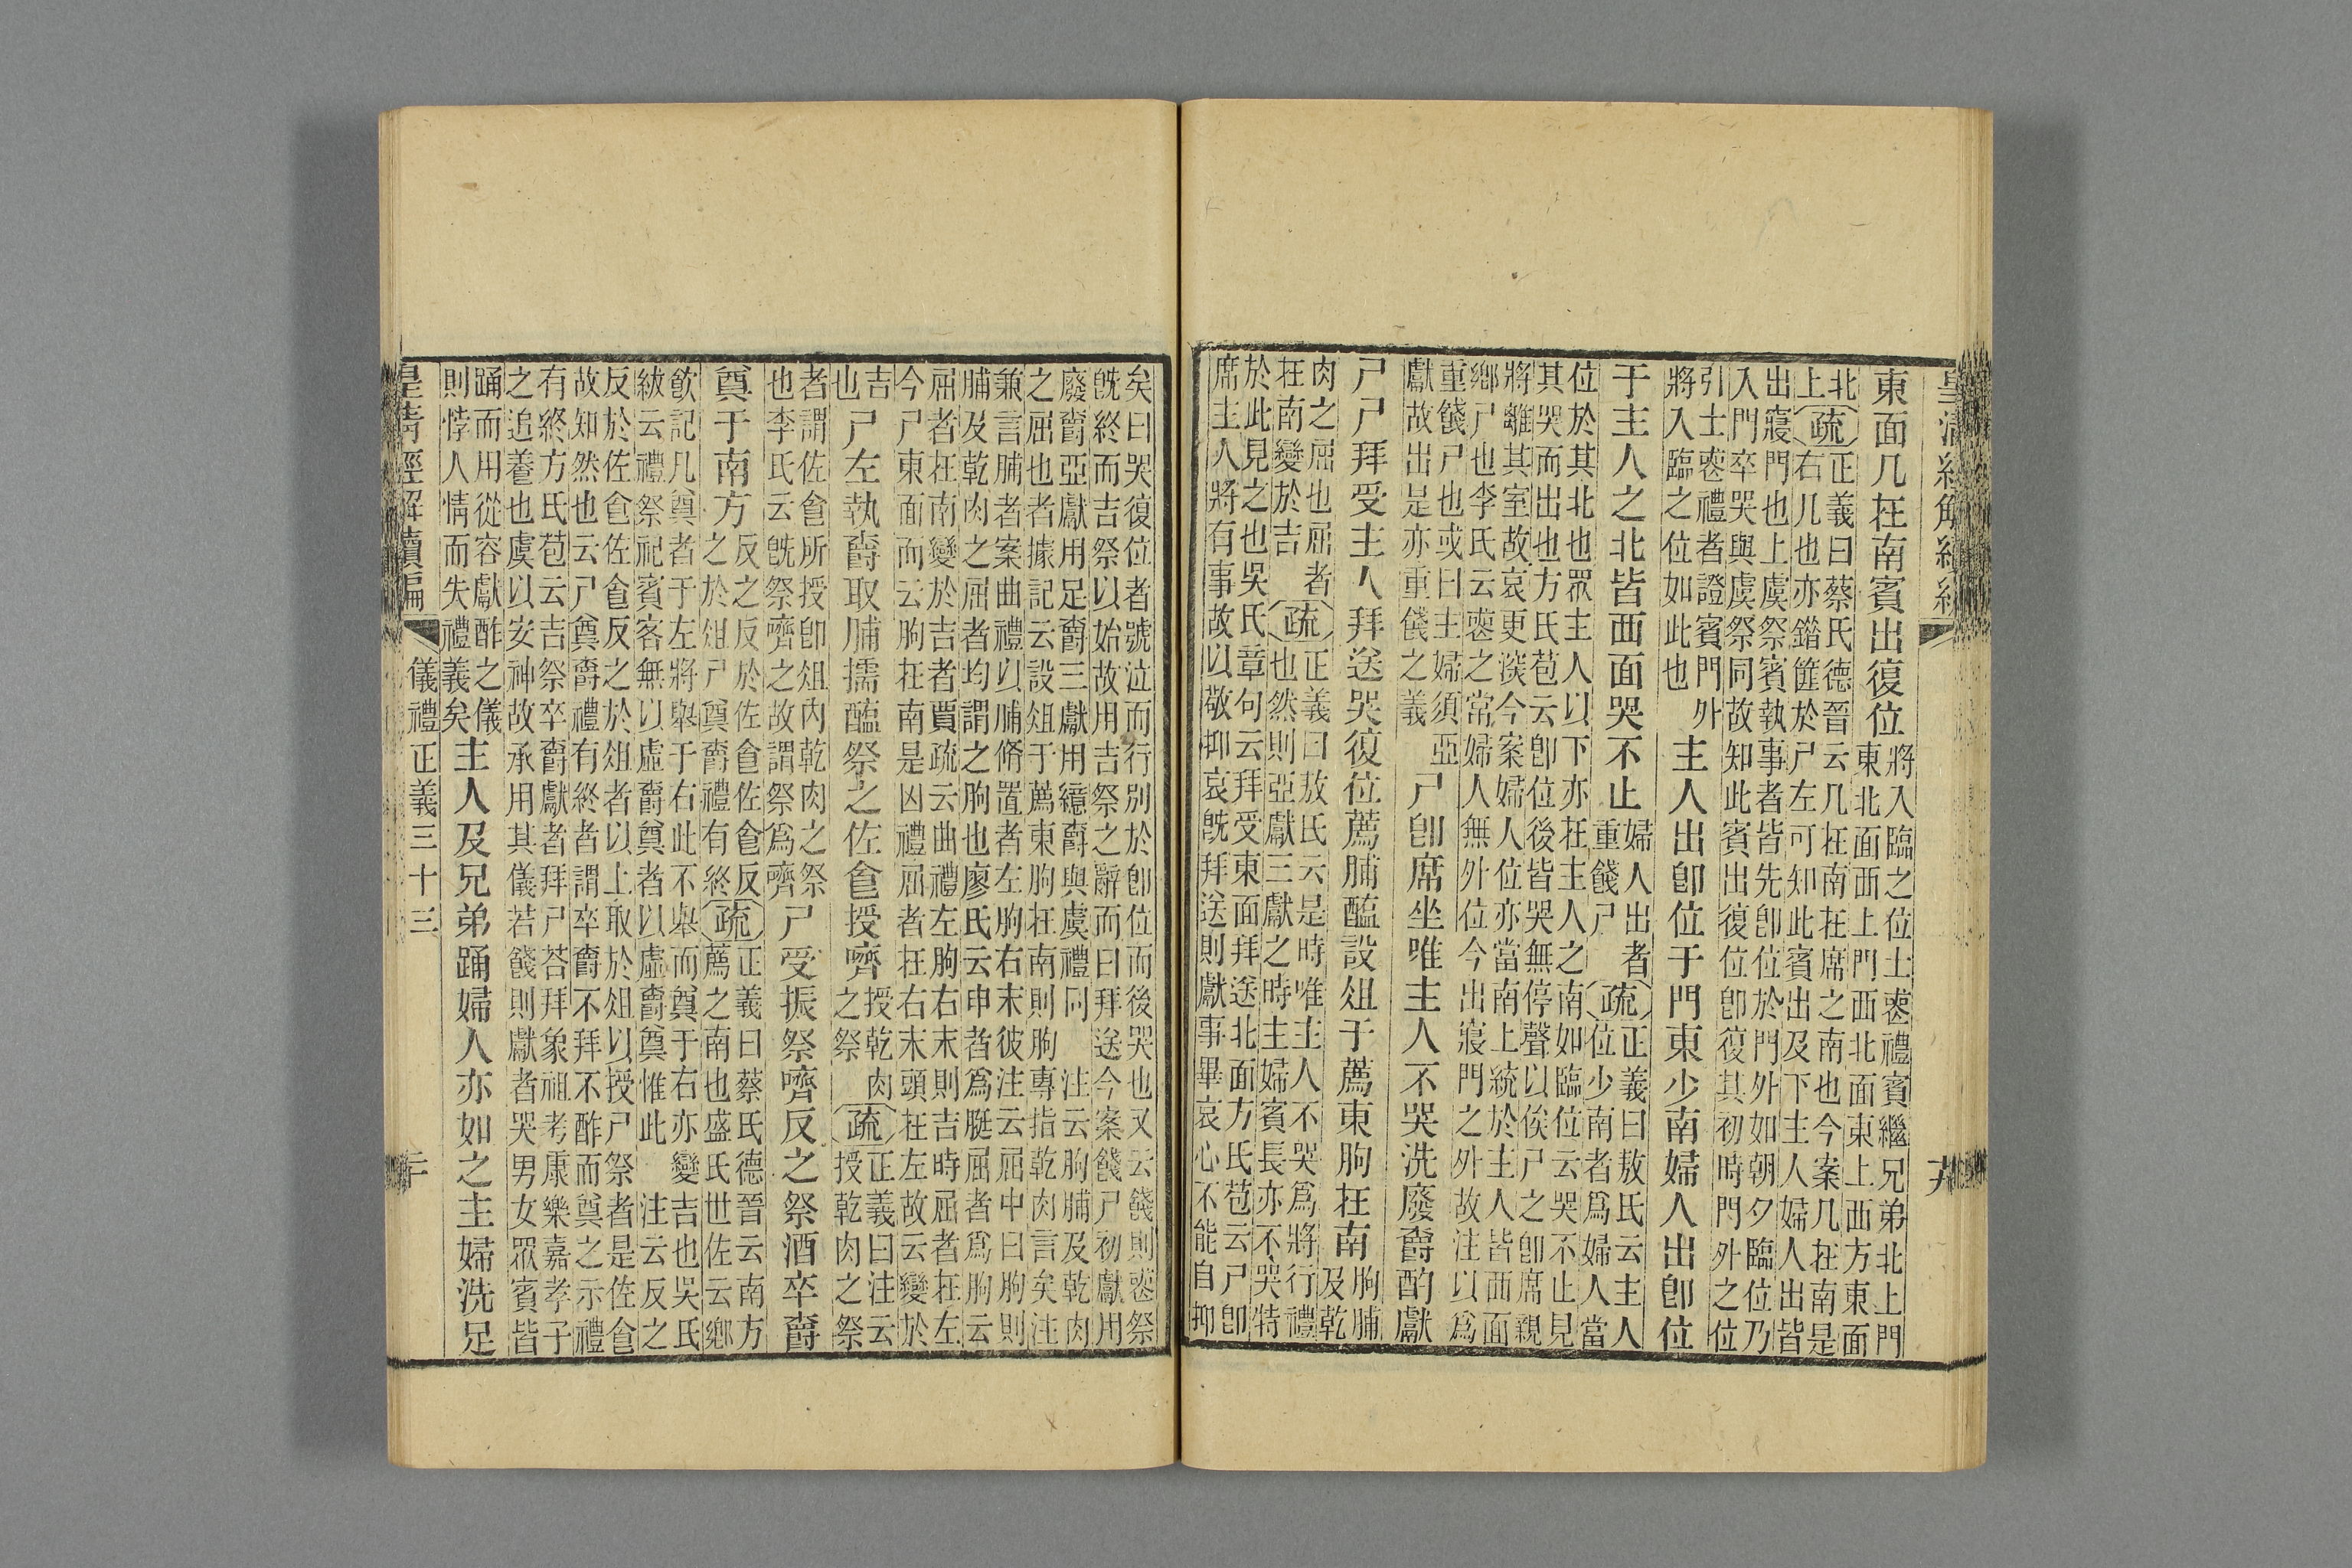 東面几在南賓出復位
將入臨之位士喪禮賓繼兄弟北上門
東北面西上門西北面東上西方東面
北
上
疏
正義曰蔡氏德晉云几在南在席之南也今案几在南是
右几也亦錯篚於尸左可知此賓出及下主人婦人出皆
出寢門也上虞祭賓執事者皆先卽位於門外如朝夕臨位乃
入門卒哭與虞祭同故知此賓出復位卽復其初時門外之位
引士喪禮者證賓門外
將入臨之位如此也
主人出卽位于門東少南婦人出卽位
于主人之北皆西面哭不止
婦人出者
重餞尸
疏
正義曰敖氏云主人
位少南者爲婦人當
位於其北也眾主人以下亦在主人之南如臨位云哭不止見
其哭而出也方氏苞云卽位後皆哭無停聲以俟尸之卽席親
將離其室故哀更深今案婦人位亦當南上統於主人皆西面
鄉尸也李氏云喪之常婦人無外位今出寢門之外故注以爲
重餞尸也或曰主婦須亞
獻故出是亦重餞之義
尸卽席坐唯主人不哭洗廢爵酌獻
尸尸拜受主人拜送哭復位薦脯醢設俎于薦東朐在南
朐脯
及乾
肉之屈也屈者
在南變於吉
疏
正義曰敖氏云是時唯主人不哭爲將行禮
也然則亞獻三獻之時主婦賓長亦不哭特
於此見之也吳氏章句云拜受東面拜送北面方氏苞云尸卽
席主人將有事故以敬抑哀旣拜送則獻事畢哀心不能自抑
矣曰哭復位者號泣而行別於卽位而後哭也又云餞則喪祭
旣終而吉祭以始故用吉祭之辭而曰拜送今案餞尸初獻用
廢爵亞獻用足爵三獻用繶爵與虞禮同 注云朐脯及乾肉
之屈也者據記云設俎于薦東朐在南則朐專指乾肉言矣注
兼言脯者案曲禮以脯脩置者左朐右末彼注云屈中曰朐則
脯及乾肉之屈者均謂之朐也廖氏云申者爲脡屈者爲朐云
屈者在南變於吉者賈疏云曲禮左朐右末則吉時屈者在左
今尸東面而云朐在南是凶禮屈者在右末頭在左故云變於
吉
也
尸左執爵取脯擩醢祭之佐食授嚌
授乾肉
之祭
疏
正義曰注云
授乾肉之祭
者謂佐食所授卽俎內乾肉之祭
也李氏云旣祭嚌之故謂祭爲嚌
尸受振祭嚌反之祭酒卒爵
奠于南方
反之反於佐食佐食反
之於俎尸奠爵禮有終
疏
正義曰蔡氏德晉云南方
薦之南也盛氏世佐云鄉
飮記凡奠者于左將舉于右此不舉而奠于右亦變吉也吳氏
紱云禮祭祀賓客無以虛爵奠者以虛爵奠惟此 注云反之
反於佐食佐食反之於俎者以上取於俎以授尸祭者是佐食
故知然也云尸奠爵禮有終者謂卒爵不拜不酢而奠之示禮
有終方氏苞云吉祭卒爵獻者拜尸荅拜象祖考康樂嘉孝子
之追養也虞以安神故承用其儀若餞則獻者哭男女眾賓皆
踊而用從容獻酢之儀
則悖人情而失禮義矣
主人及兄弟踊婦人亦如之主婦洗足
皇清經解續編
儀禮正義三十三
二十